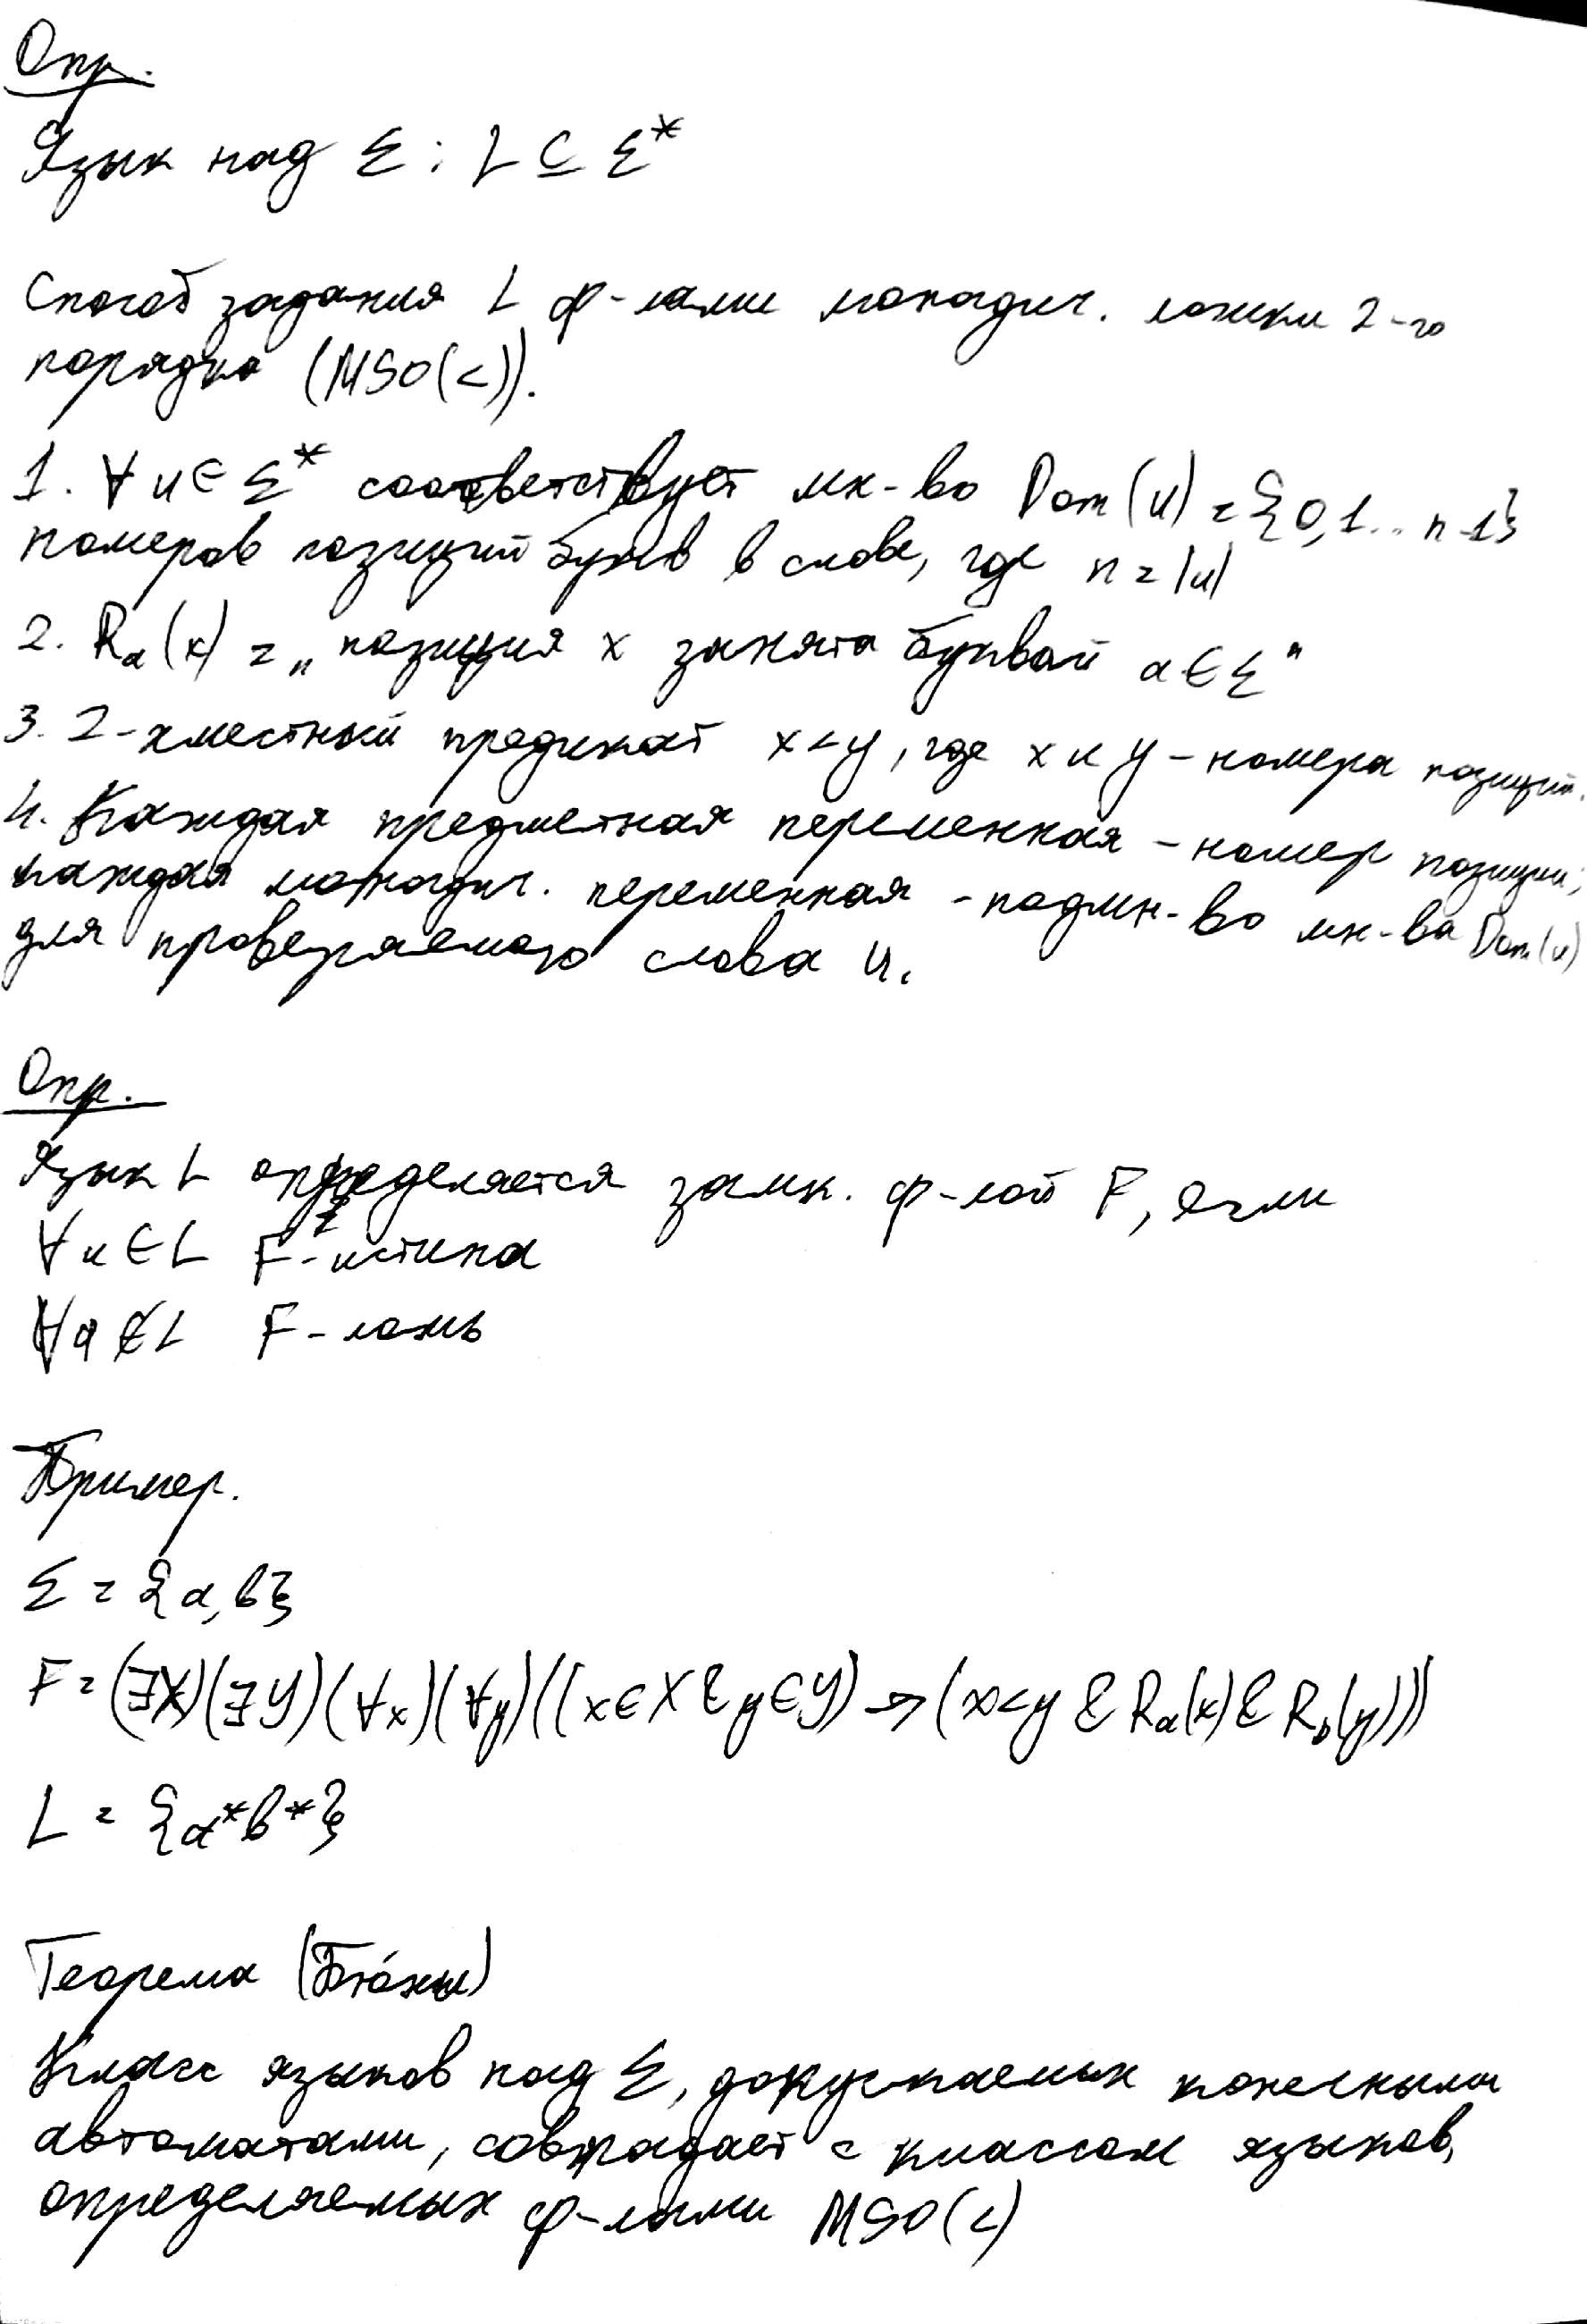 Опр.
Язык над Σ : L ⊆ Σ*
Способ задания L ф-лами монадич. логики 2-го
порядка (MSO(<)).
1. ∀ u ∈ Σ* соответствует мн-во Dom(u) = {0,1...n-1}
номеров позиций букв в слове, где n = |u|
2. Rₐ(x) = „позиция x занята буквой a ∈ Σ"
3. 2-хместный предикат x < y, где x и y - номера позиций.
4. Каждая предметная переменная - номер позиции;
каждая монадич. переменная - подмн-во мн-ва Dom(u)
для проверяемого слова u.
Опр.
Язык L определяется замк. ф-лой F, если
∀ u ∈ L F - истина
∀ u ∉ L F - ложь
Пример.
Σ = {a, b}
F = (∃X)(∃Y)(∀x)(∀y)((x ∈ X & y ∈ Y) → (x < y & Rₐ(x) & R_b(y)))
L = {a*b*}
Теорема (Бю́хи)
Класс языков над Σ, допускаемых конечными
автоматами, совпадает с классом языков,
определяемых ф-лами MSO(<)